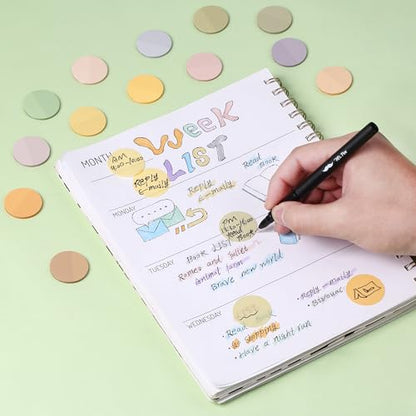 MONTH
Week
LIST
AM
9:00-10:00
Reply
E-mail
Reply
E-mail
Read
Book
MONDAY
PM
Read
Book
TUESDAY
Book LIST
Romeo and Juliet
Animal farm
Brave new world
WEDNESDAY
• Read
• shopping
• Have a night run
• Reply e-mail
• Bivouac